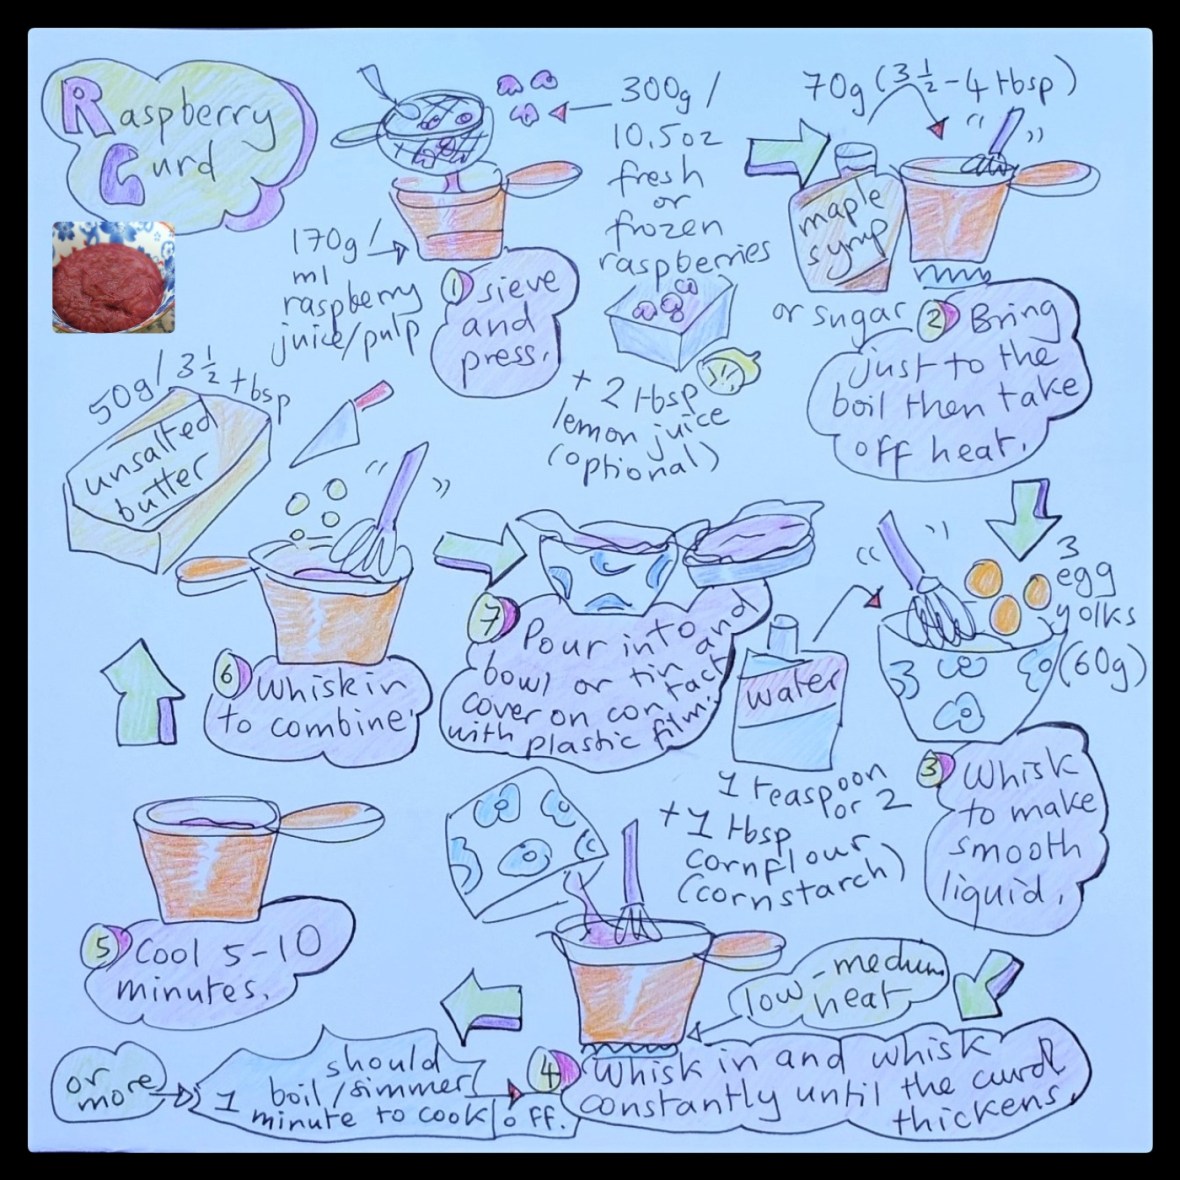 Raspberry
Curd
300g/
10.5oz
fresh
or
frozen
raspberries
+ 2 tbsp
lemon juice
(optional)
170g/
ml
raspberry
juice/pulp
1 sieve
and
press.
70g (3½-4 tbsp)
maple
syrup
or sugar
2 Bring
just to the
boil then take
off heat.
3
egg
yolks
(60g)
water
1 teaspoon
or 2
+ 1 tbsp
cornflour
(cornstarch)
3 Whisk
to make
smooth
liquid.
low-medium
heat
4 Whisk in and whisk
constantly until the curd
thickens.
or
more
should
boil/simmer
1 minute to cook off.
5 Cool 5-10
minutes.
50g/3½ tbsp
unsalted
butter
6 Whisk in
to combine.
7 Pour into
bowl or tin and
cover on contact
with plastic film.